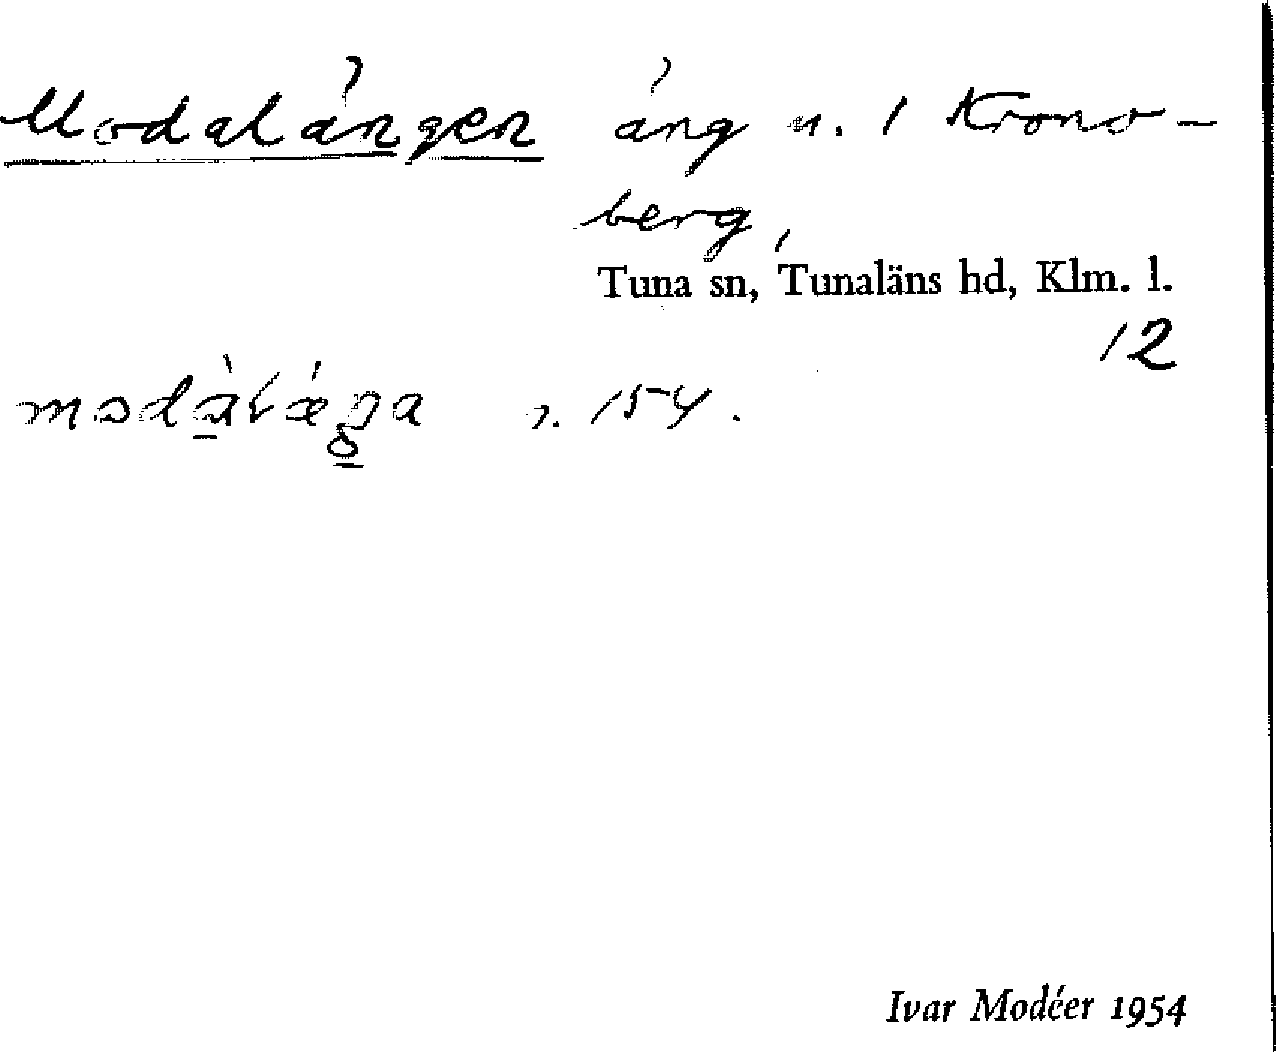 Modalängen äng n. 1 Krono-
berg,
Tuna sn, Tunaläns hd, Klm. l.
12
154.
Ivar Modéer 1954